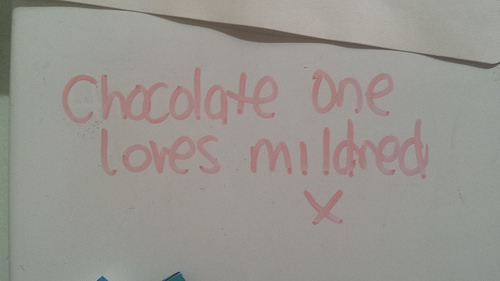 Chocolate one
loves mildred
x